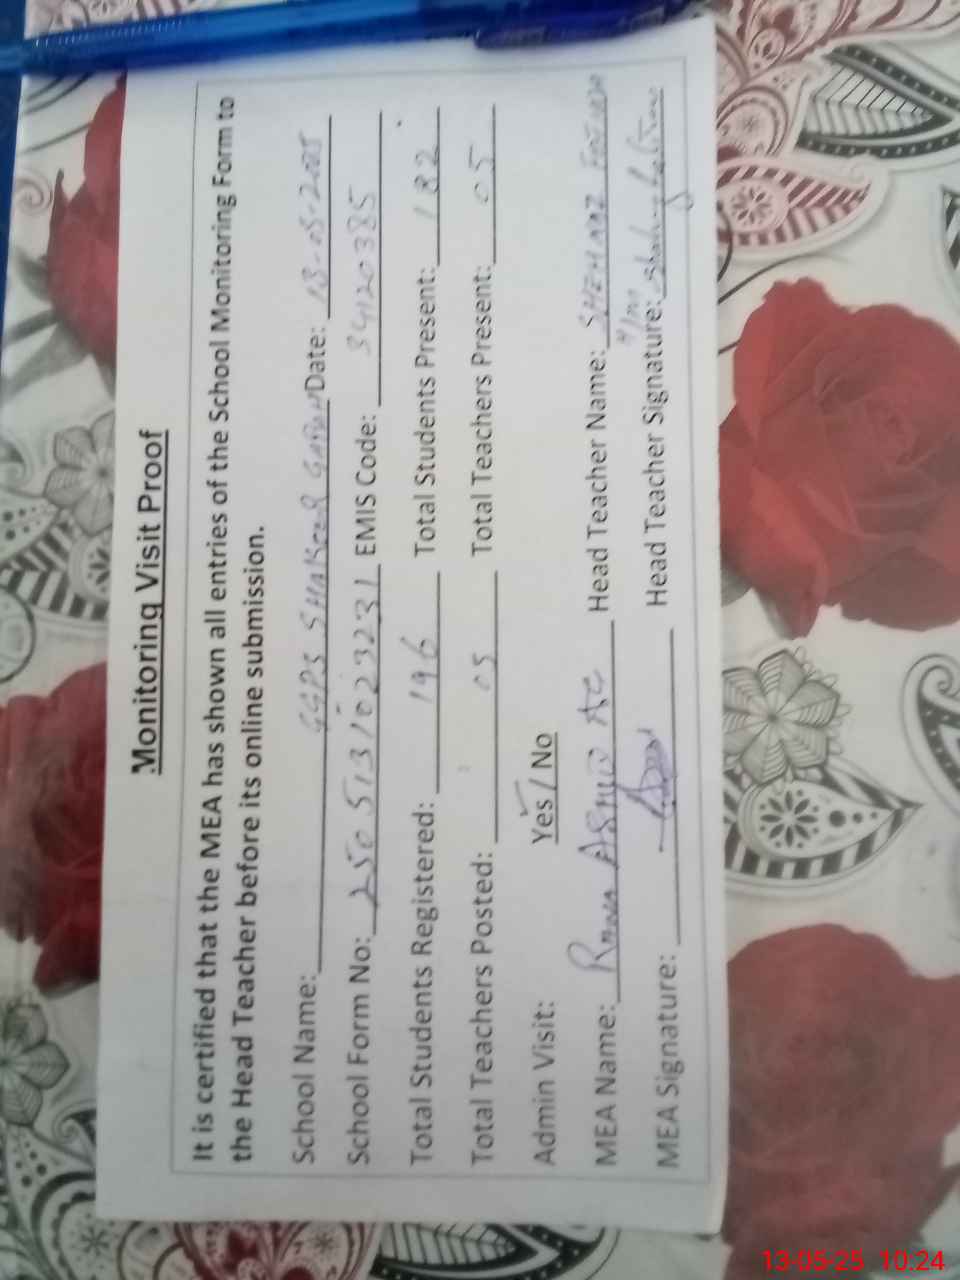 Monitoring Visit Proof
It is certified that the MEA has shown all entries of the School Monitoring Form to
the Head Teacher before its online submission.
School Name: GGPS SHAKEER GARAH Date: 13-05-2025
School Form No: 2505131023231 EMIS Code: 34120385
Total Students Registered: 196 Total Students Present: 182
Total Teachers Posted: 05 Total Teachers Present: 05
Admin Visit: Yes / No
MEA Name: Rana Head Teacher Name: SHEHNAZ
MEA Signature: Head Teacher Signature:
13-05-25 10:24